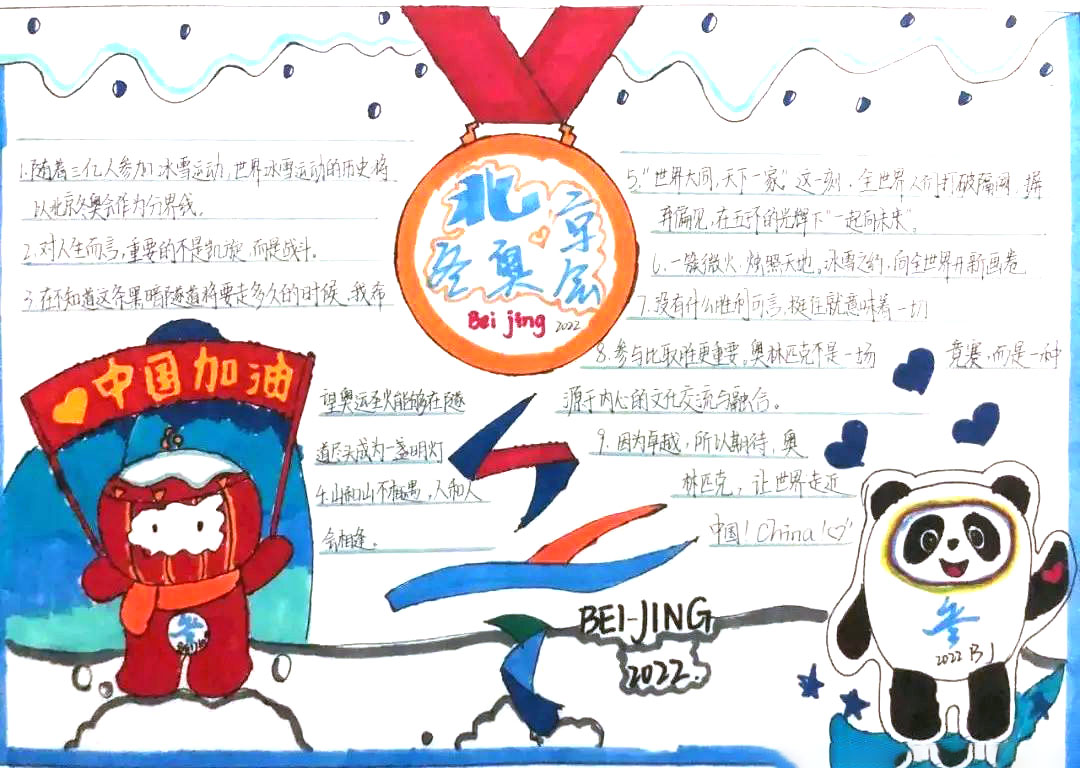 北京
冬奥会
Bei jing 2022
1.随着三亿人参加冰雪运动,世界冰雪运动的历史将
以北京冬奥会作为分界线。
2.对人生而言,重要的不是凯旋,而是战斗。
3.在不知道这条黑暗隧道将要走多久的时候,我希
望奥运圣火能够在隧
道尽头成为一盏明灯
山和山不相遇,人和人
会相逢。
5."世界大同,天下一家"这一刻,全世界人们打破隔阂,摒
弃偏见,在五环的光辉下"一起向未来"。
6.一簇微火,燎照天地。冰雪之约,向全世界开新画卷
7.没有什么胜利可言,挺住就意味着一切
8.参与比取胜更重要。奥林匹克不是一场 竞赛,而是一种
源于内心的文化交流与融合。
9.因为卓越,所以期待,奥
林匹克,让世界走近
中国!China!
中国加油
冬
BEIJING
BEI-JING
2022.
冬
2022 BJ